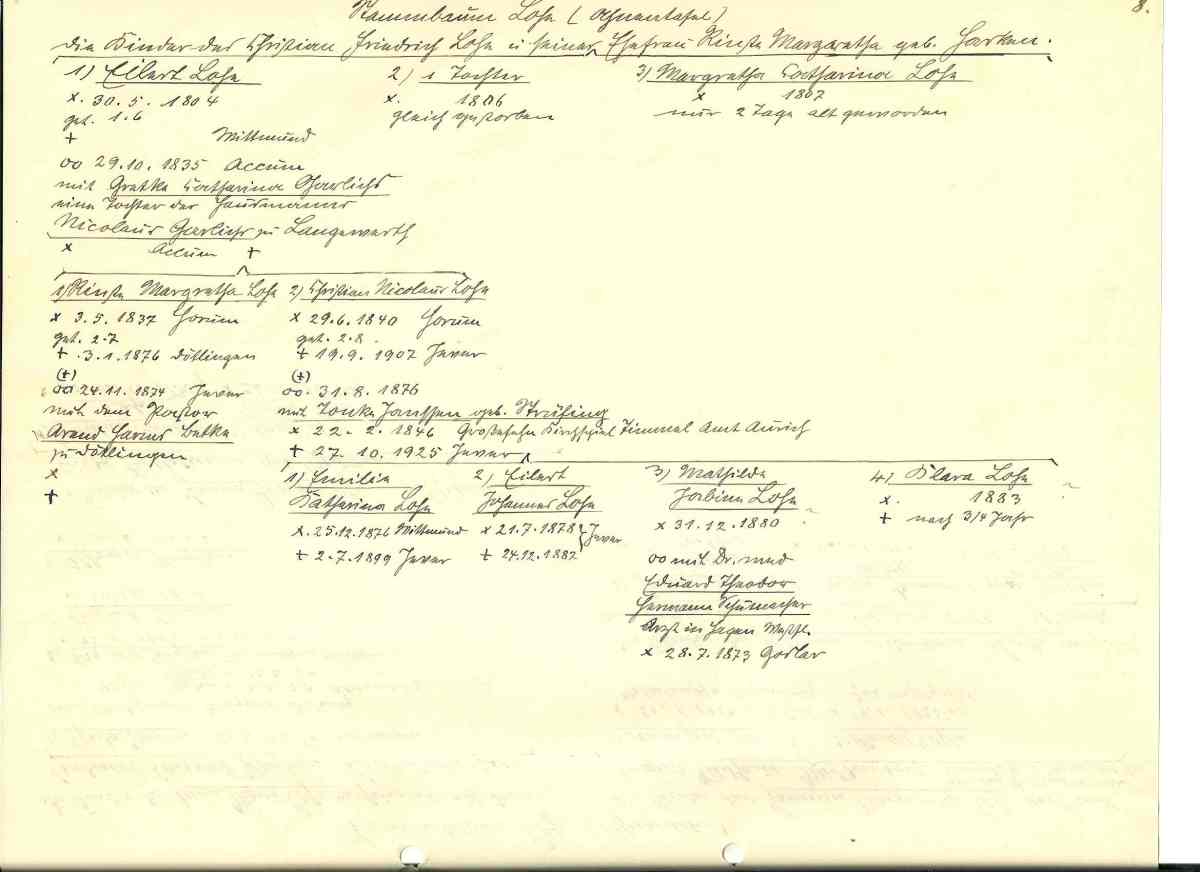 8.
Stammbaum Lohe (Ahnentafel)
Die Kinder des Christian Friedrich Lohe u seiner Ehefrau Rinste Margaretha geb. Harken.
1) Eilert Lohe
x. 30.5.1804
get. 1.6
+ Wittmund
oo 29.10.1835 Accum
mit Gretke Catharina Garlichs
eine Tochter des Hausmanns
Nicolaus Garlichs zu Langewerth
x Accum +
2) 1 Tochter
x. 1806
gleich gestorben
3) Margretha Catharina Lohe
x 1807
nur 2 Tage alt geworden
1) Rinste Margretha Lohe
x 3.5.1837 Horum
get. 2.7
+ .3.1.1876 Dötlingen
(+)
oo 24.11.1874 Jever
mit dem Pastor
Arend Harms Betke
zu Dötlingen
x
+
2) Christian Nicolaus Lohe
x 29.6.1840 Horum
get. 2.8.
+ 19.9.1907 Jever
(+)
oo. 31.8.1876
mit Jonke Janssen geb. Strüfing
x 22. 2. 1846 Großefehn Kirchspiel Timmel Amt Aurich
+ 27. 10. 1925 Jever
1) Emilie
Katharina Lohe
x. 25.12.1876 Wittmund
+ 2.7.1899 Jever
2) Eilert
Johannes Lohe
x 21.7.1878 } Jever
+ 24.12.1887
3) Mathilde
Sabine Lohe
x 31.12.1880
oo mit Dr. med
Eduard Theodor
Hermann Schumacher
Arzt in Hagen Westf.
x 28.7.1873 Goslar
4) Klara Lohe
x. 1883
+ nach 3/4 Jahr